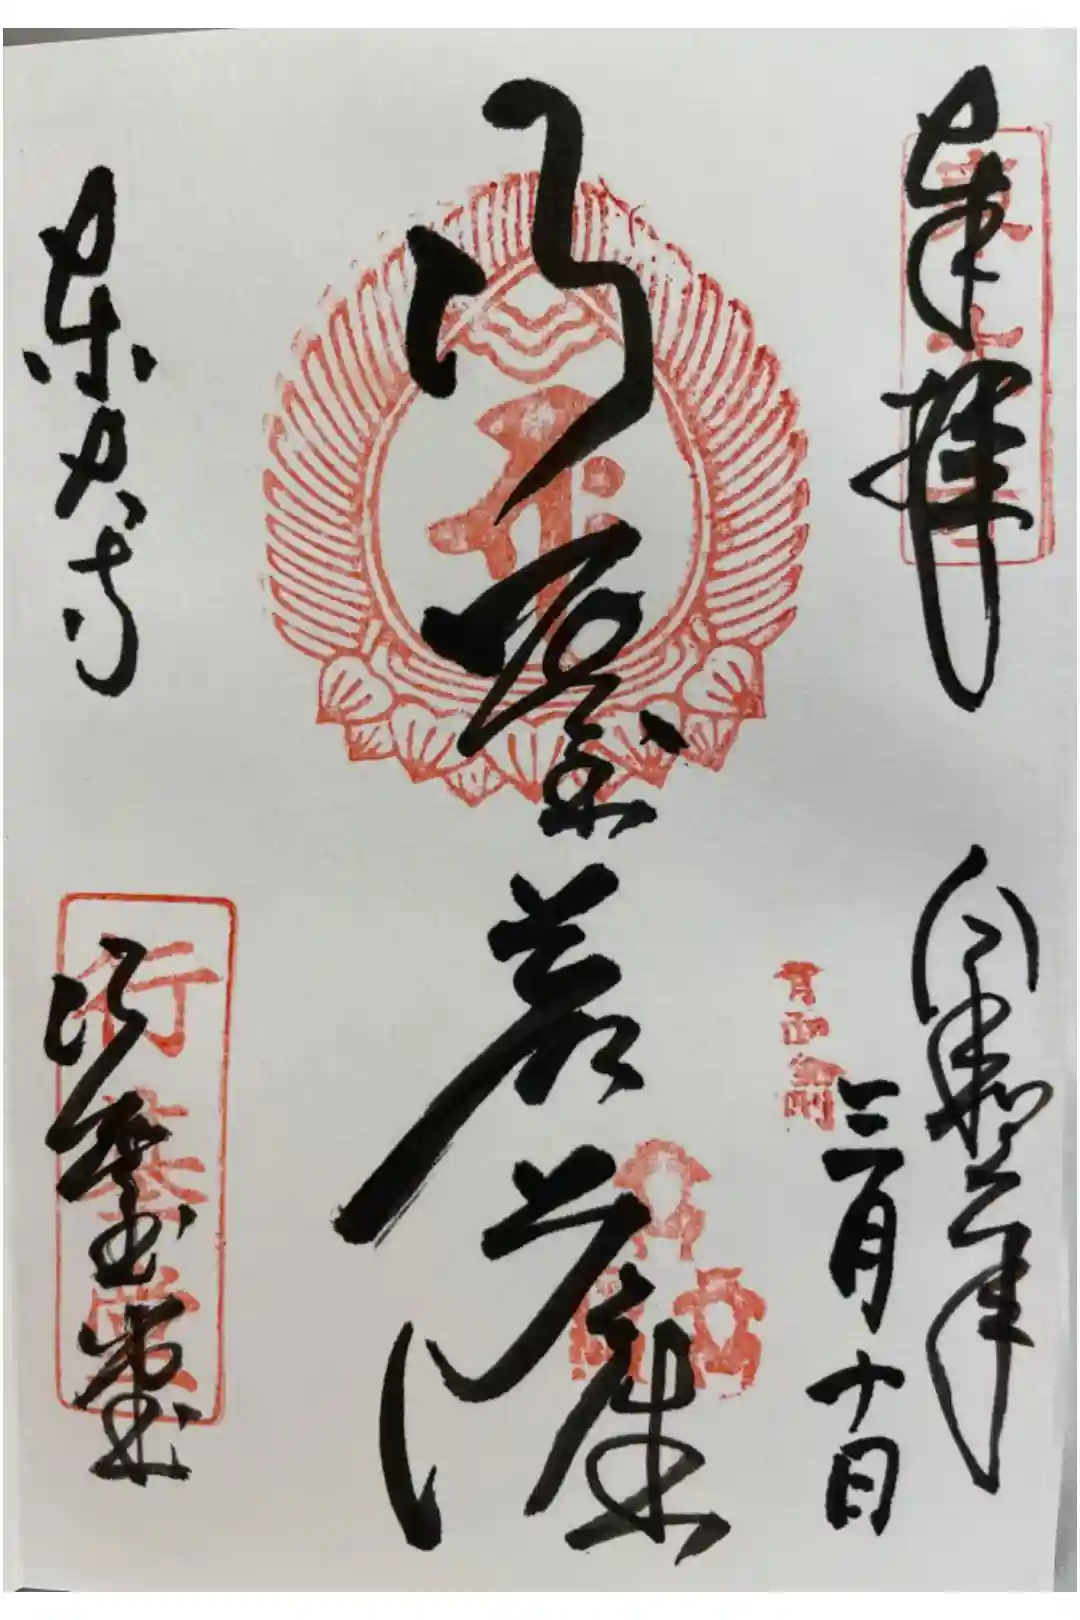 奉拝
令和二年
三月十日
青面金剛
行基菩薩
東大寺
行基堂
行基堂